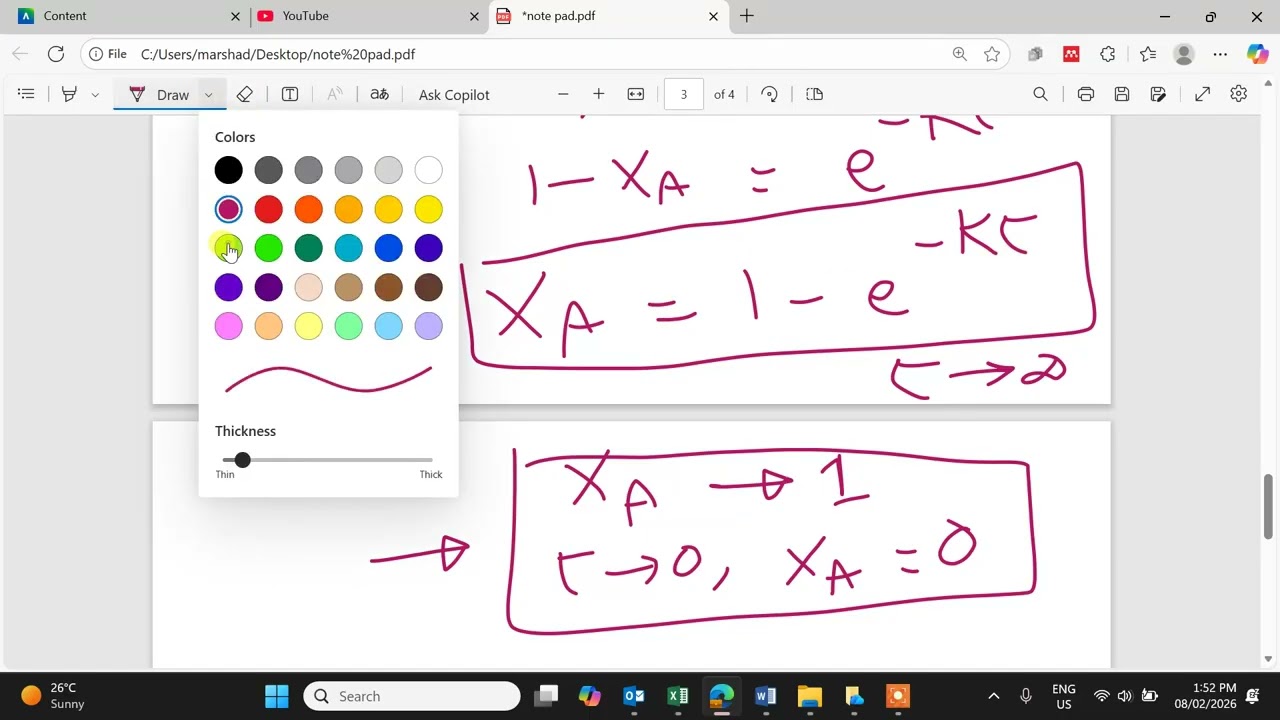 Content
YouTube
*note pad.pdf
File
C:/Users/marshad/Desktop/note%20pad.pdf
Draw
aあ
Ask Copilot
3
of 4
Colors
Thickness
Thin
Thick
1 - XA = e
- Kτ
XA = 1 - e - Kτ
τ → ∞
XA → 1
τ → 0, XA = 0
26°C
Sunny
Search
ENG
US
1:52 PM
08/02/2026